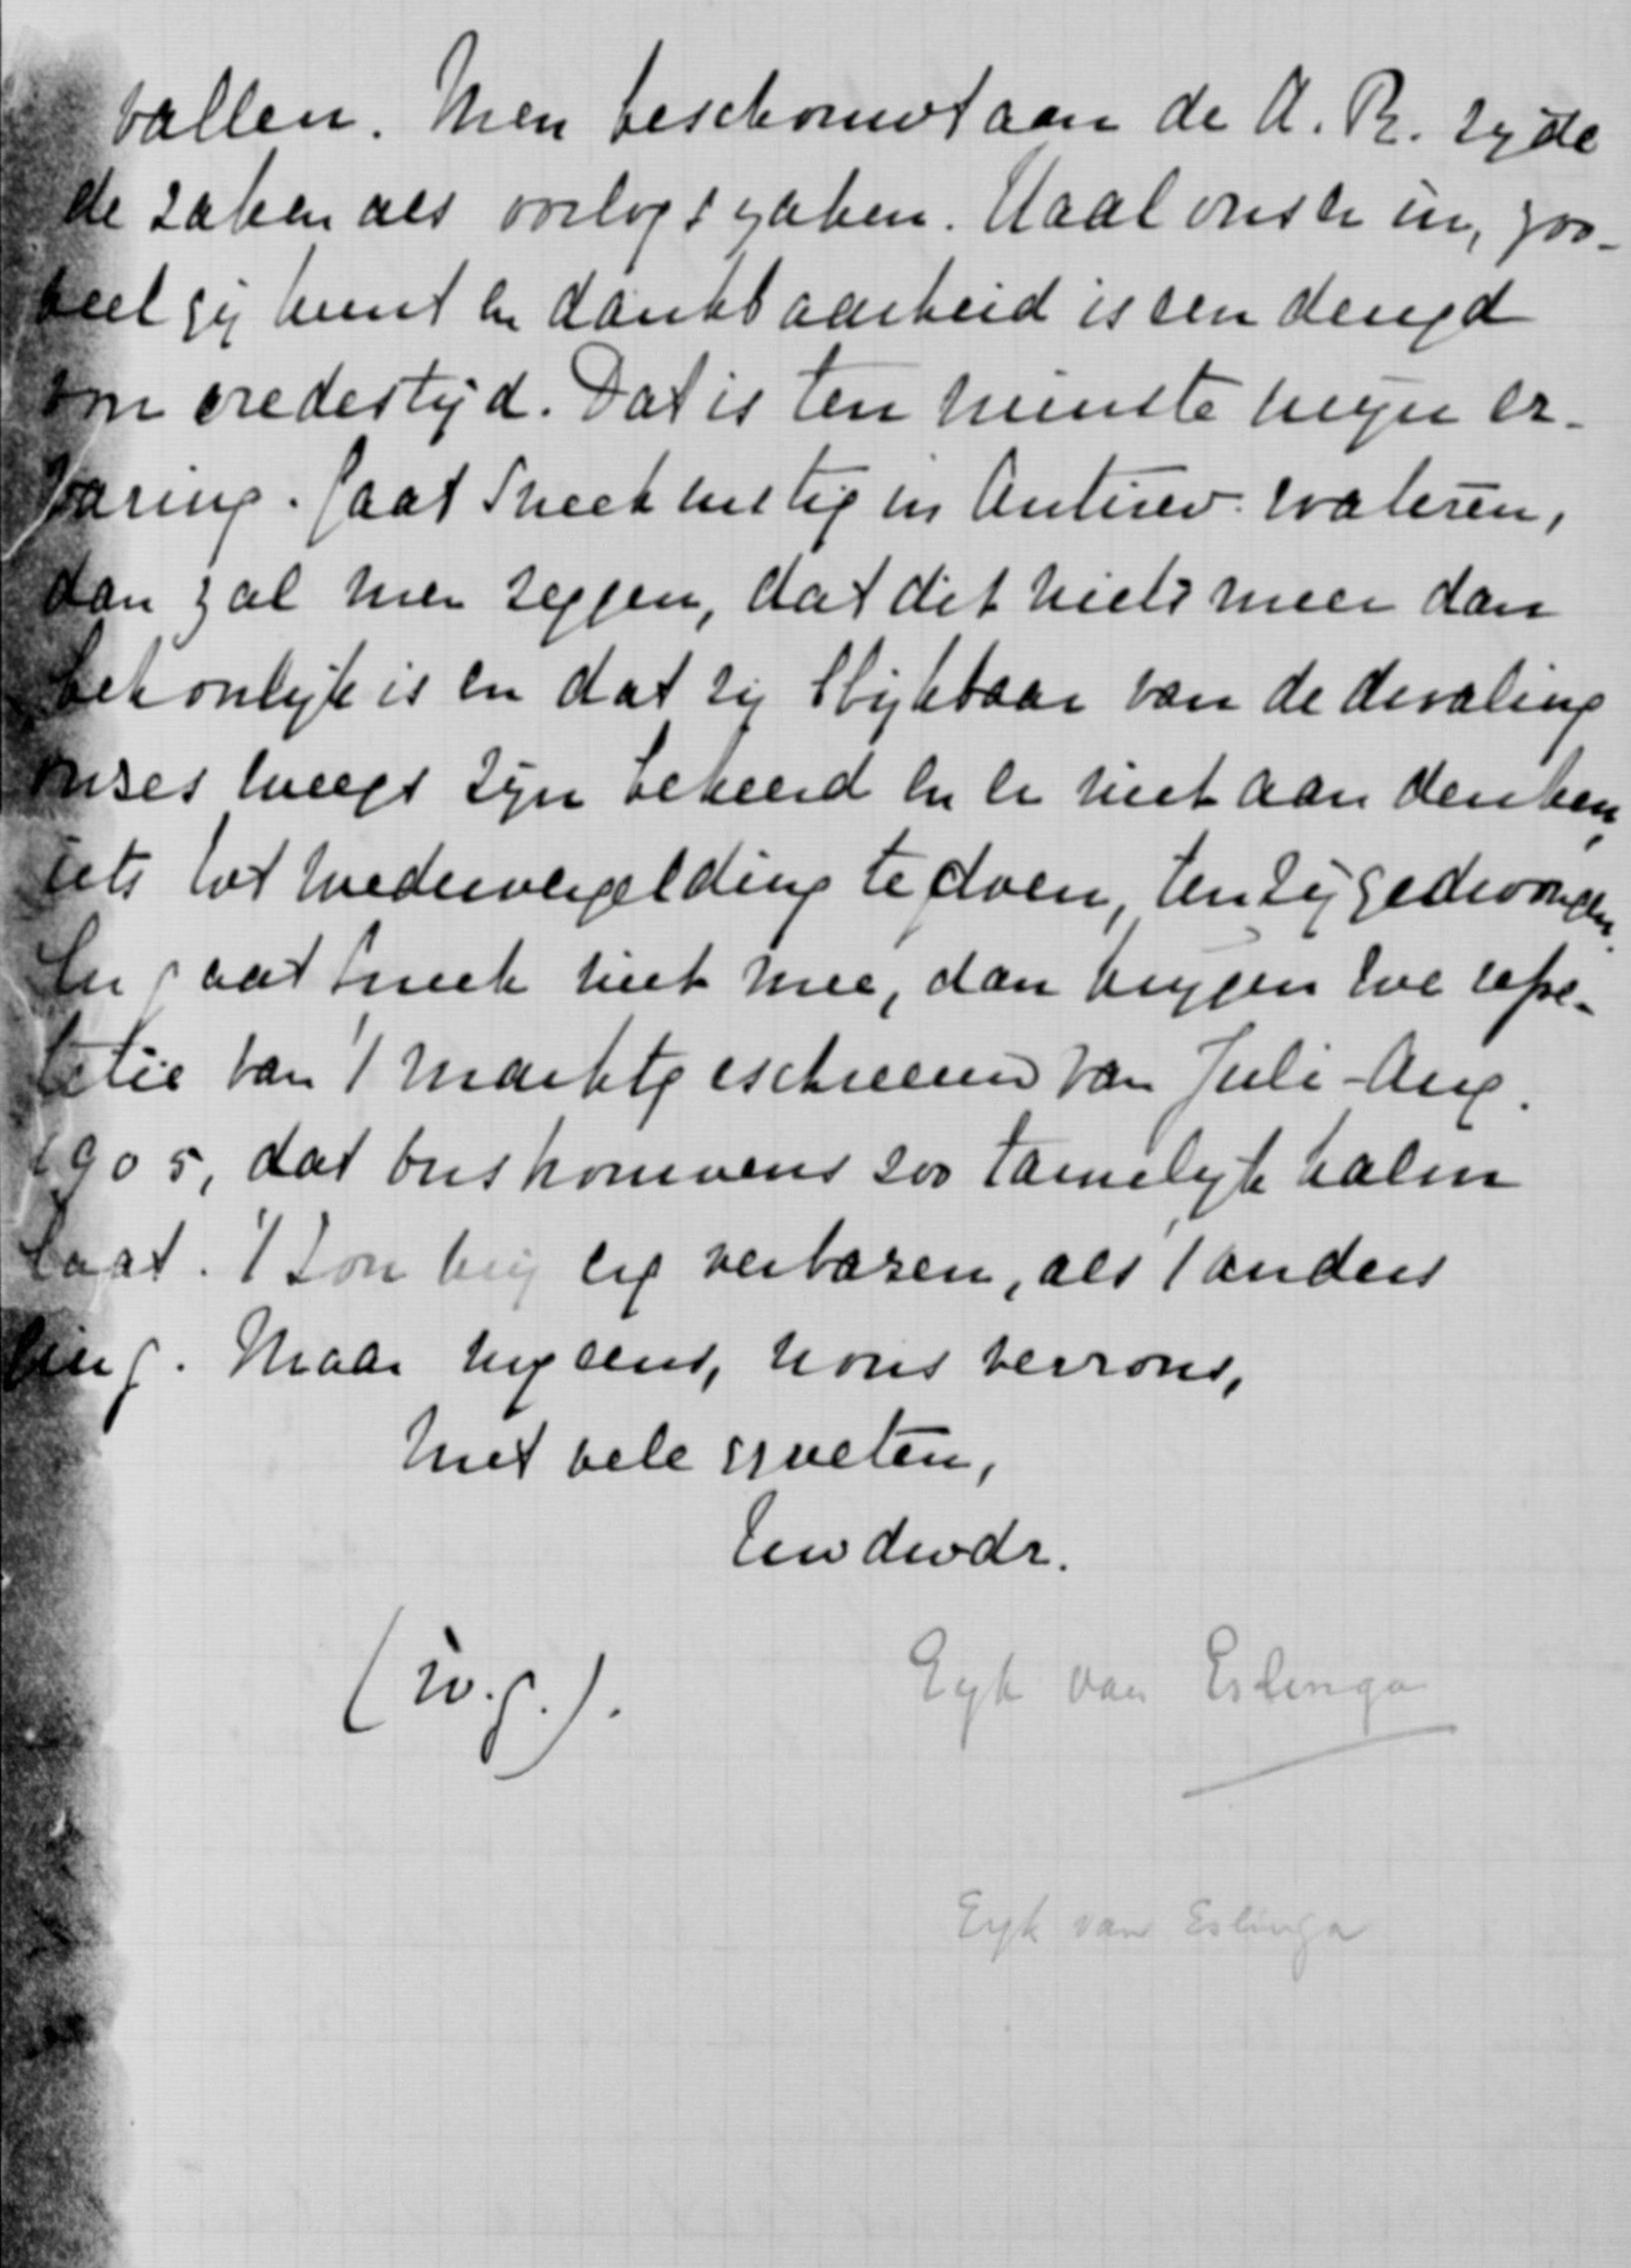 vallen. Men beschouwt aan de A. R. zijde
de zaken als oorlogszaken. Haal onste in, zoo-
veel gij kunt en dankbaarheid is een deugd
om vredestijd. Dat is ten minste mijn er-
varing. Gaat Sneek rustig in Antirev. wateren,
dan zal men zeggen, dat dit niets meer dan
behoorlijk is en dat zij blijkbaar van de dwaling
onses weegs zijn bekeerd en er niet aan denken,
iets tot wedervergelding te doen, tenzij gedwongen.
En gaat Sneek niet mee, dan krijgen we repe-
titie van 't marktgeschreeuw van Juli-Aug.
1905, dat ons trouwens zoo tamelijk kalm
laat. 't Zou mij erg verbazen, als 't anders
ging. Maar nogeens, nous verrons,
Met vele groeten,
Uw dwdr.
(w.g.). Eyk van Eslinga
Eyk van Eslinga